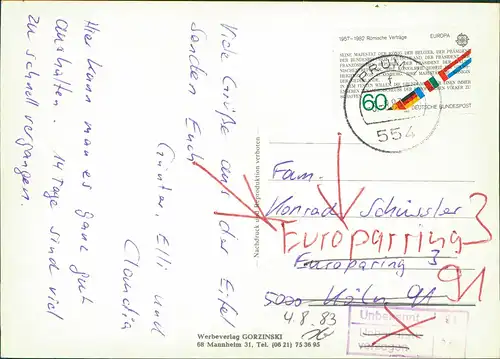 Viele Grüße aus der Eifel
senden Euch
Günter, Elli und
Claudia
Hier kann man es ganz gut
aushalten. 14 Tage sind viel
zu schnell vergangen.
Nachdruck und Reproduktion verboten
1957-1982 Römische Verträge
EUROPA
SEINE MAJESTÄT DER KÖNIG DER BELGIER, DER PRÄSIDENT
60
DEUTSCHE BUNDESPOST
PRÜM
554
Fam.
Konrad Schüssler
Europarring 3
Europaring 3
91
5000 Köln 91
4.8.83
Unbekannt
Unbekannt
verzogen
Werbeverlag GORZINSKI
68 Mannheim 31, Tel. (06 21) 75 36 95